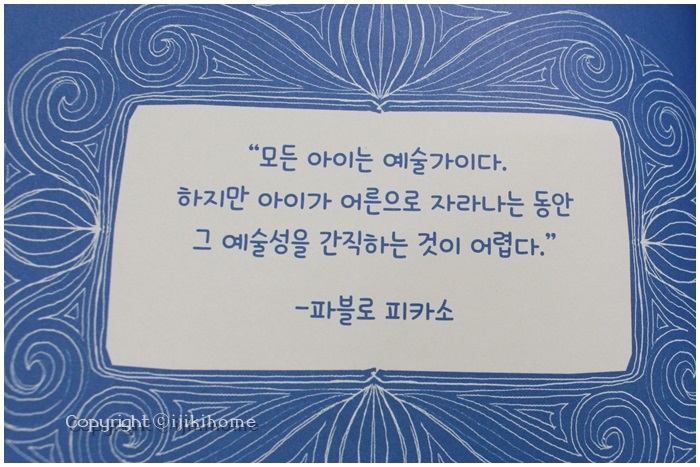 “모든 아이는 예술가이다.
하지만 아이가 어른으로 자라나는 동안
그 예술성을 간직하는 것이 어렵다.”
-파블로 피카소
Copyright ©ijikihome